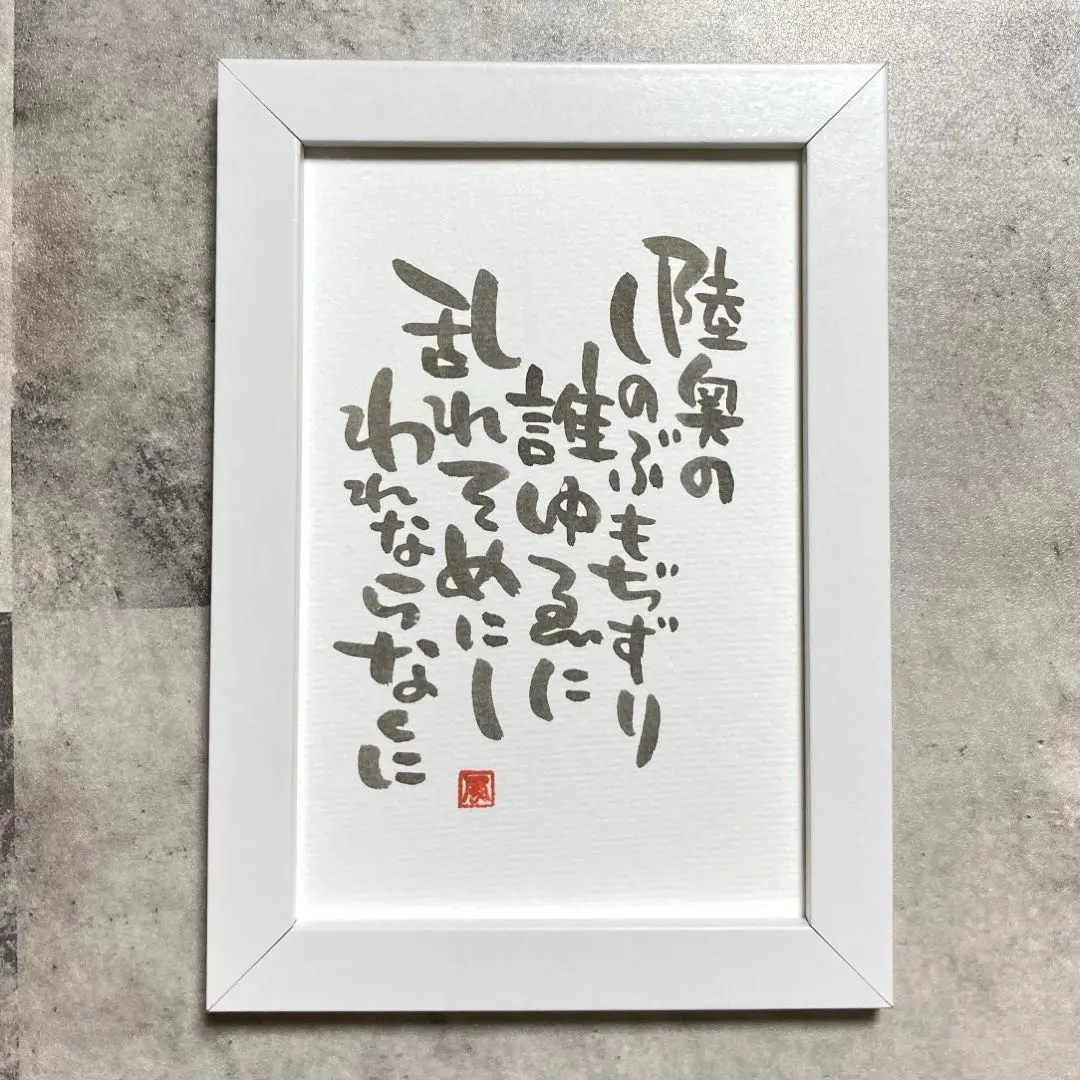 陸奥の
しのぶもぢずり
誰ゆゑに
乱れそめにし
われならなくに